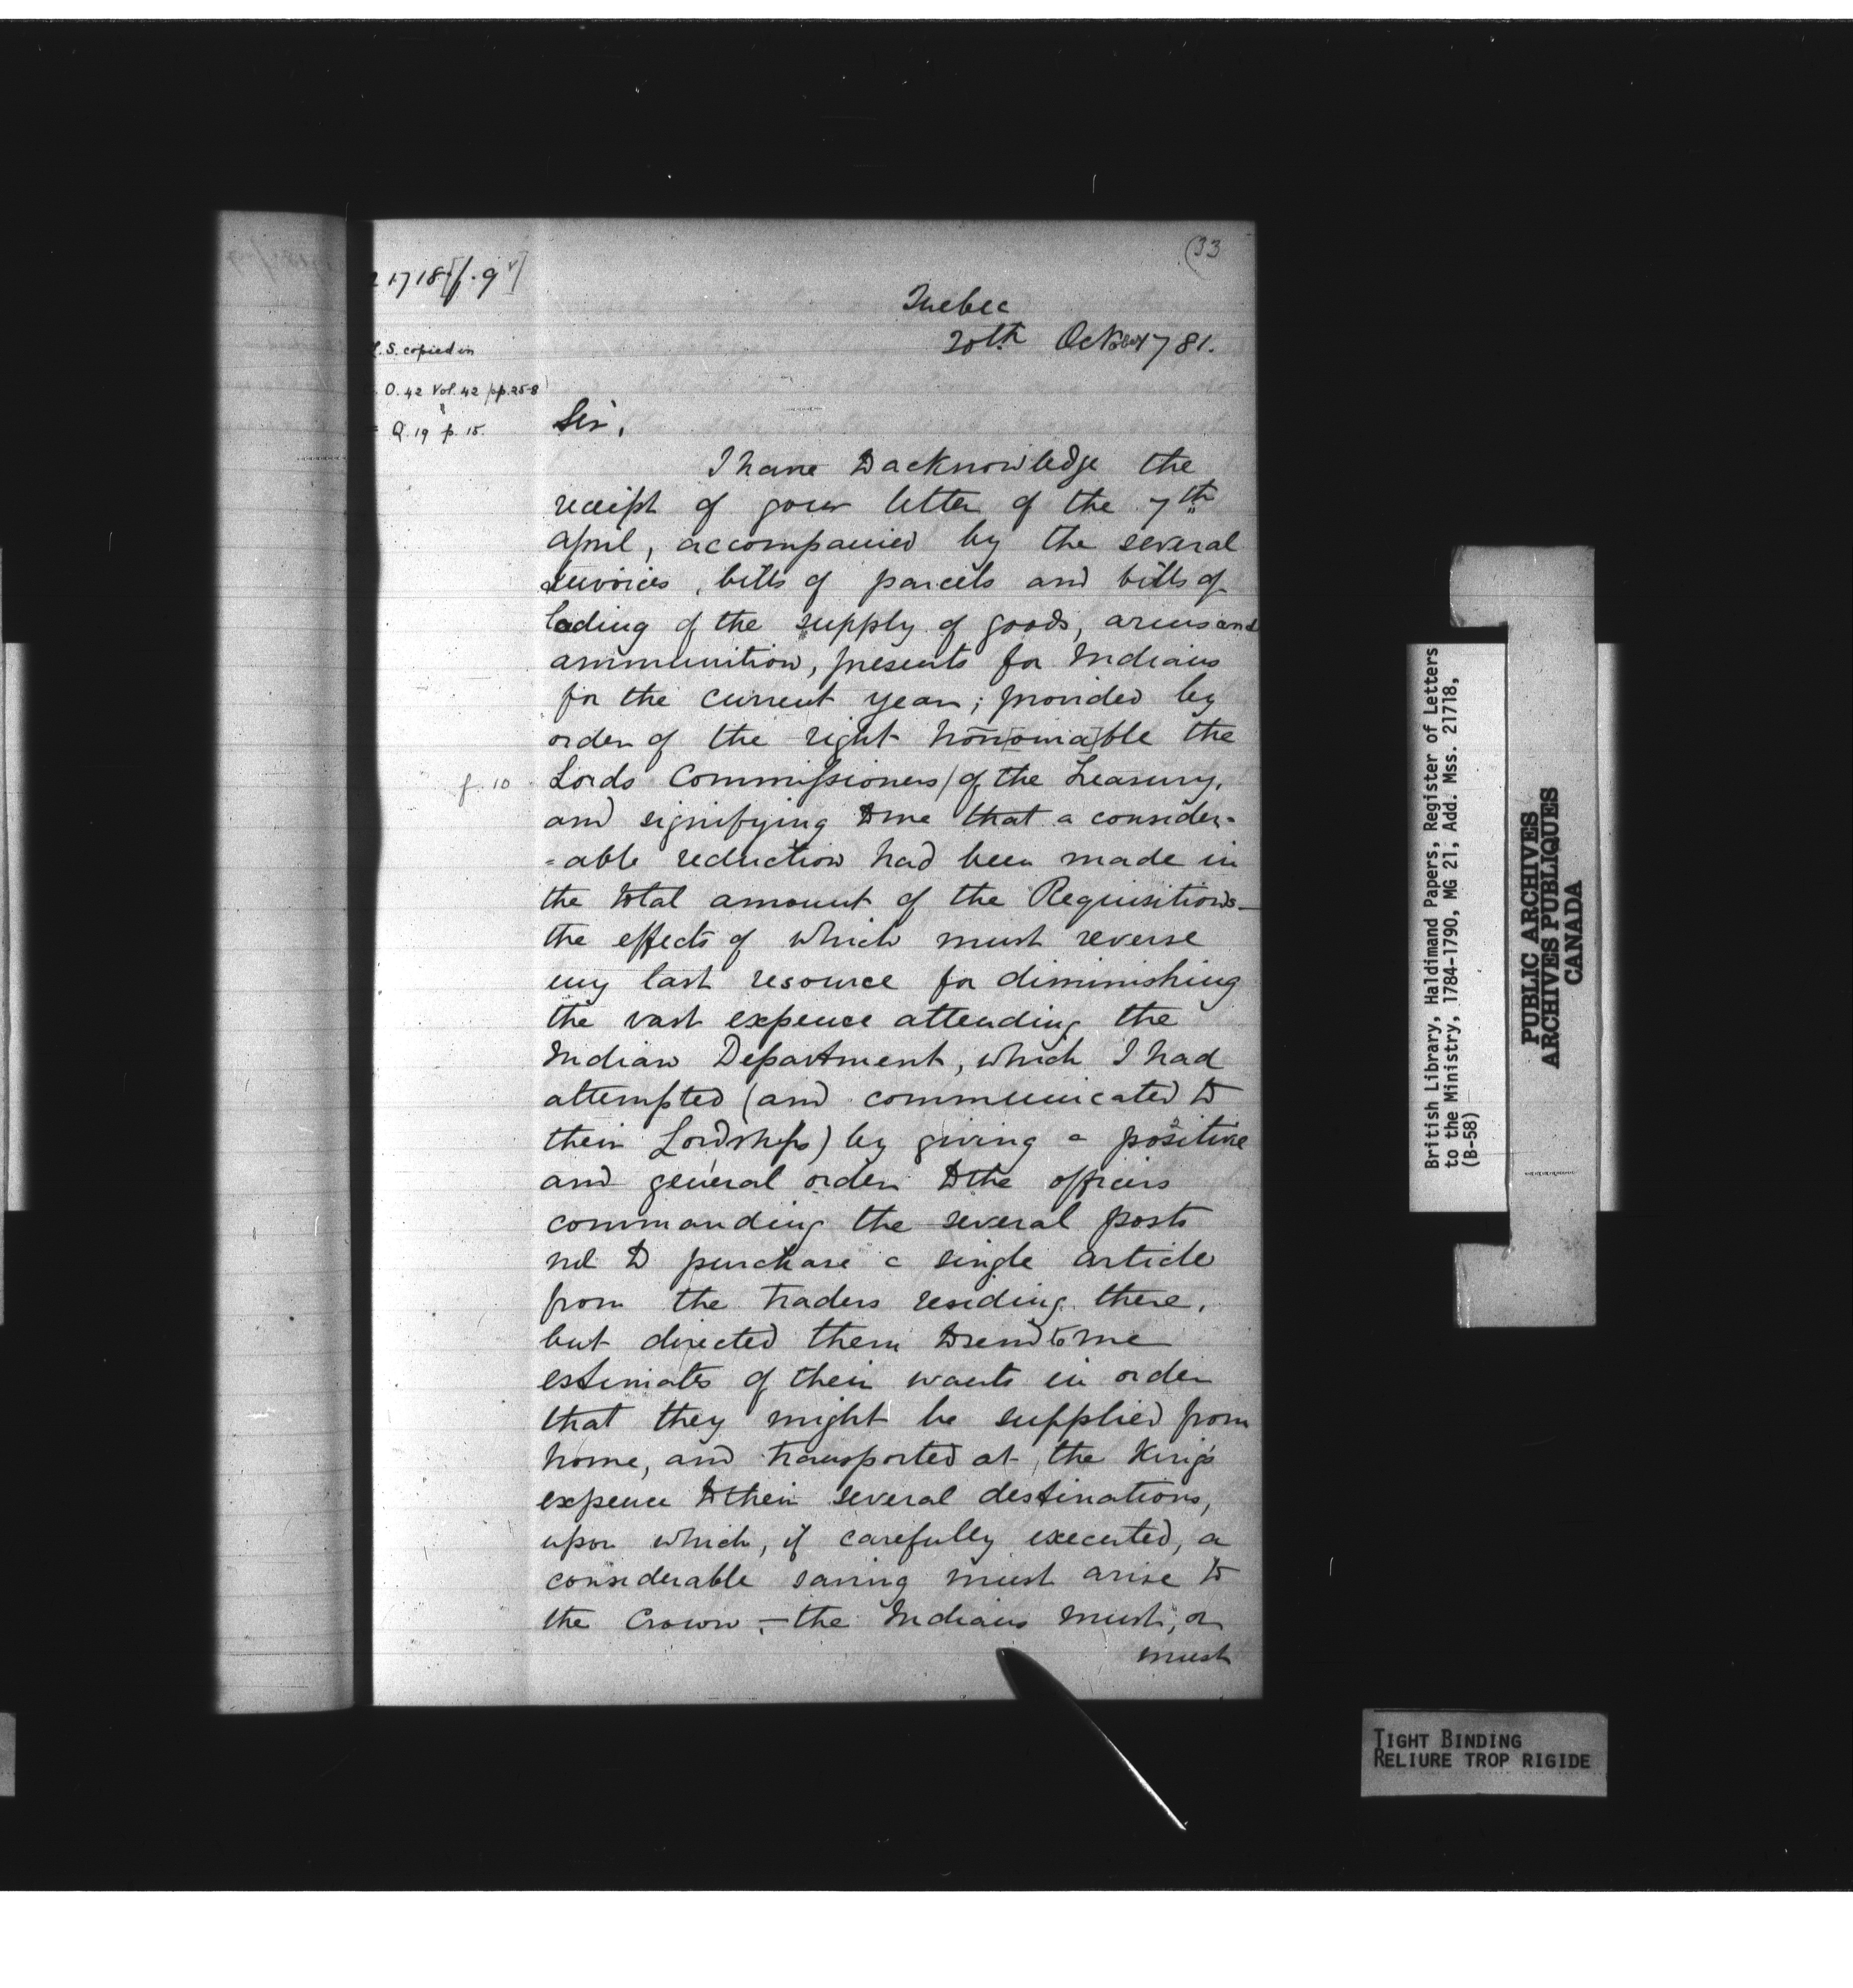 (33
21718 [f. 9v]
Quebec
20th October 1781.
L.S. copied in
C.O. 42 Vol. 42 pp. 25-8
= Q. 19 p. 15.
Sir,
I have to acknowledge the
receipt of your letter of the 7th
april, accompanied by the several
Invoices, bills of parcels and bills of
lading of the supply of goods, arms and
ammunition, presents for Indians
for the current year; provided by
order of the right hon[oura]ble the
f. 10
Lords Commissioners / of the Treasury,
and signifying to me that a consider-
=able reduction had been made in
the total amount of the Requisitions—
the effects of which must reverse
my last resource for diminishing
the vast expence attending the
Indian Department, which I had
attempted (and communicated to
their Lordships) by giving a positive
and general order to the officers
commanding the several posts
not to purchase a single article
from the traders residing there,
but directed them to send to me
estimates of their wants in order
that they might be supplied from
home, and transported at the King's
expence to their several destinations,
upon which, if carefully executed, a
considerable saving must arise to
the Crown,—the Indians must, or
must
British Library, Haldimand Papers, Register of Letters
to the Ministry, 1784-1790, MG 21, Add. Mss. 21718,
(B-58)
PUBLIC ARCHIVES
ARCHIVES PUBLIQUES
CANADA
TIGHT BINDING
RELIURE TROP RIGIDE